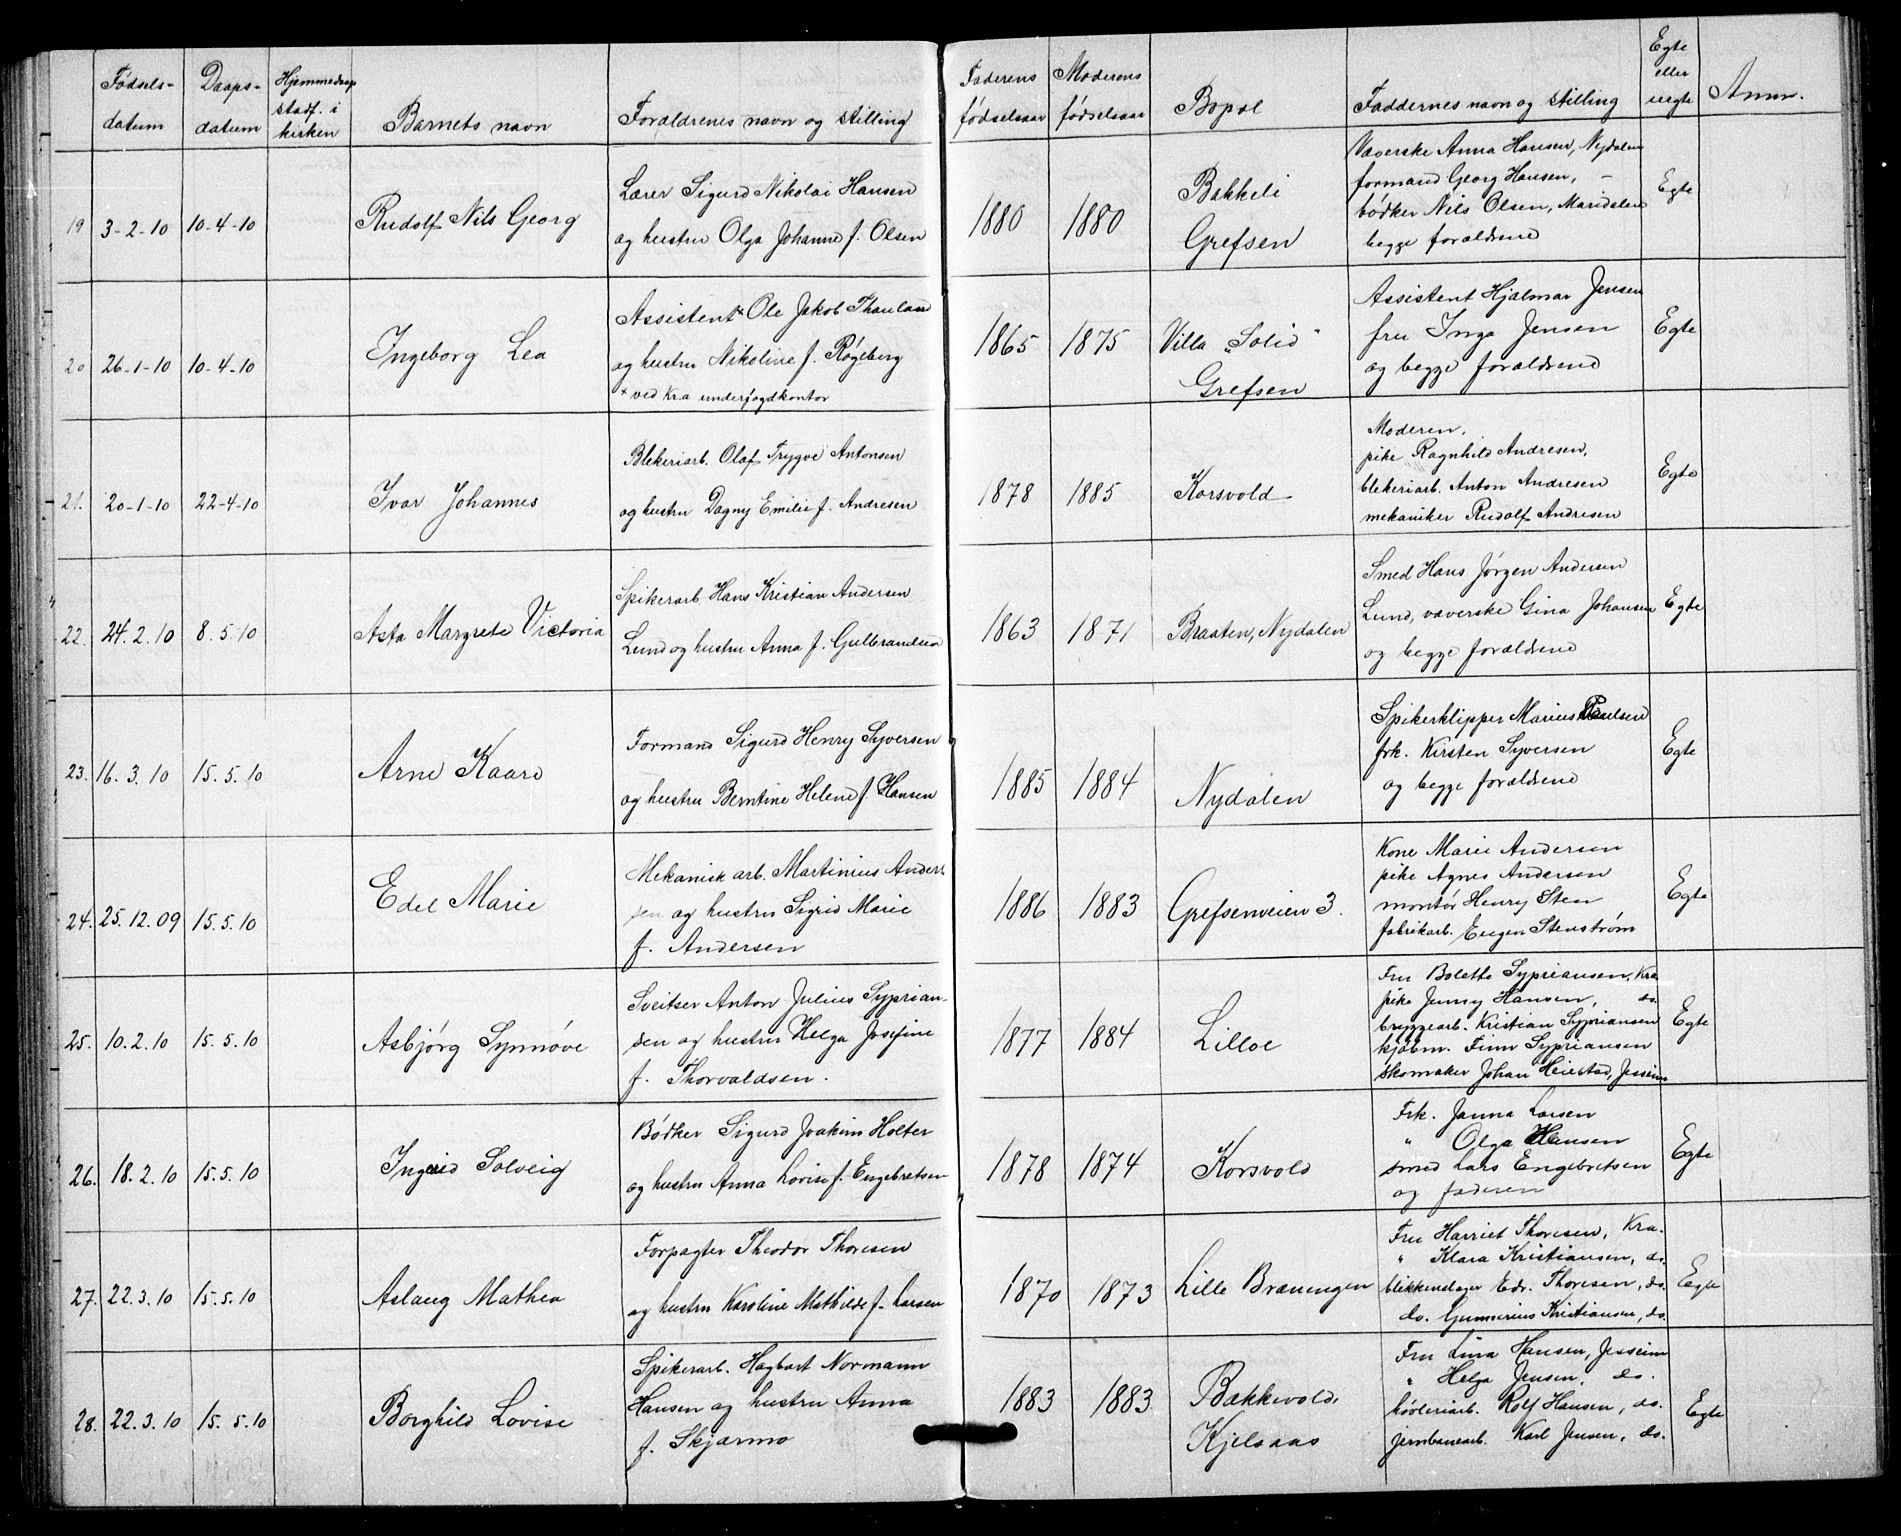 Fødsels-
datum
Daaps-
datum
Hjemmedaap
stadf. i
kirken
Barnets navn
Forældrenes navn og stilling
Faderens
fødselsaar
Moderens
fødselsaar
Bopæl
Faddernes navn og stilling
Egte
eller
uegte
Anm.
19
3-2-10
10-4-10
Rudolf Nils Georg
Lærer Sigurd Nikolai Hansen
og hustru Olga Johanne f. Olsen
1880
1880
Bakkeli
Grefsen
Væverske Anna Hansen, Nydalen
formand Georg Hansen, –
bødker Nils Olsen, Maridalen
begge forældrene
Egte
20
26-1-10
10-4-10
Ingeborg Lea
Assistent* Ole Jakob Thauland
og hustru Nikoline f. Røgeberg
* ved Kra underfogdkontor
1865
1875
Villa „Solid"
Grefsen
Assistent Hjalmar Jensen
fru Inga Jensen
og begge forældrene
Egte
21.
20-1-10
22-4-10
Ivar Johannes
Blekeriarb. Olaf Trygve Antonsen
og hustru Dagny Emilie f. Andresen
1878
1885
Korsvold
Moderen,
pike Ragnhild Andresen,
blekeriarb. Anton Andresen
mekaniker Rudolf Andresen
Egte
22.
24.2.10
8.5.10
Asta Margrete Victoria
Spikerarb Hans Kristian Andersen
Lund og hustru Anna f. Gulbrandsen
1863
1871
Braaten, Nydalen
Smed Hans Jørgen Andersen
Lund, væverske Gina Johansen
og begge forældrene
Egte
23.
16.3.10
15.5.10
Arne Kaare
Formand Sigurd Henry Syversen
og hustru Berntine Helene f. Hansen
1885
1884
Nydalen
Spikerklipper Marius Paulsen
frk. Kirsten Syversen
og begge forældrene
Egte
24.
25.12.09
15.5.10
Edel Marie
Mekanisk arb. MartiniusAnder-
sen og hustru Sigrid Marie
f. Andersen
1886
1883
Grefsenveien 3.
Kone Marie Andersen
pike Agnes Andersen
montør Henry Sten
fabrikarb. Eugen Stenstrøm
Egte
25.
10.2.10
15.5.10
Asbjørg Synnøve
Sveitser Anton Julius Syprian-
sen og hustru Helga Josefine
f. Thorvaldsen.
1877
1884
Lilloe
Fru Bolette Sypriansen, Kra
pike Jenny Hansen, do.
bryggearb. Kristian Sypriansen
kjøbm. Finn Sypriansen
skomaker Johan Heiestad, Jessheim
Egte
26.
18.2.10
15.5.10
Ingrid Solveig
Bødker Sigurd Joakim Holter
og hustru Anna Lovise f. Engebretsen
1878
1874
Korsvold
Frk. Janna Larsen
" Olga Hansen
smed Lars Engebretsen
og faderen
Egte
27.
22.3.10
15.5.10
Aslaug Mathea
Forpagter Theodor Thoresen
og hustru Karoline Mathilde f. Larsen
1870
1873
Lille Bræningen
Fru Harriet Thoresen, Kra.
" Klara Kristiansen, do.
blikkenslager Edv. Thoresen, do.
do. Gunnerius Kristiansen, do.
Egte
28.
22.3.10
15.5.10
Borghild Lovise
Spikerarb. Hagbart Normann
Hansen og hustru Anna
f. Skjærmo
1883
1883
Bakkevold,
Kjelsaas
Fru Lina Hansen, Jessheim
" Helga Jensen, do.
høvleriarb. Rolf Hansen, do.
jernbanearb. Karl Jensen, do.
Egte